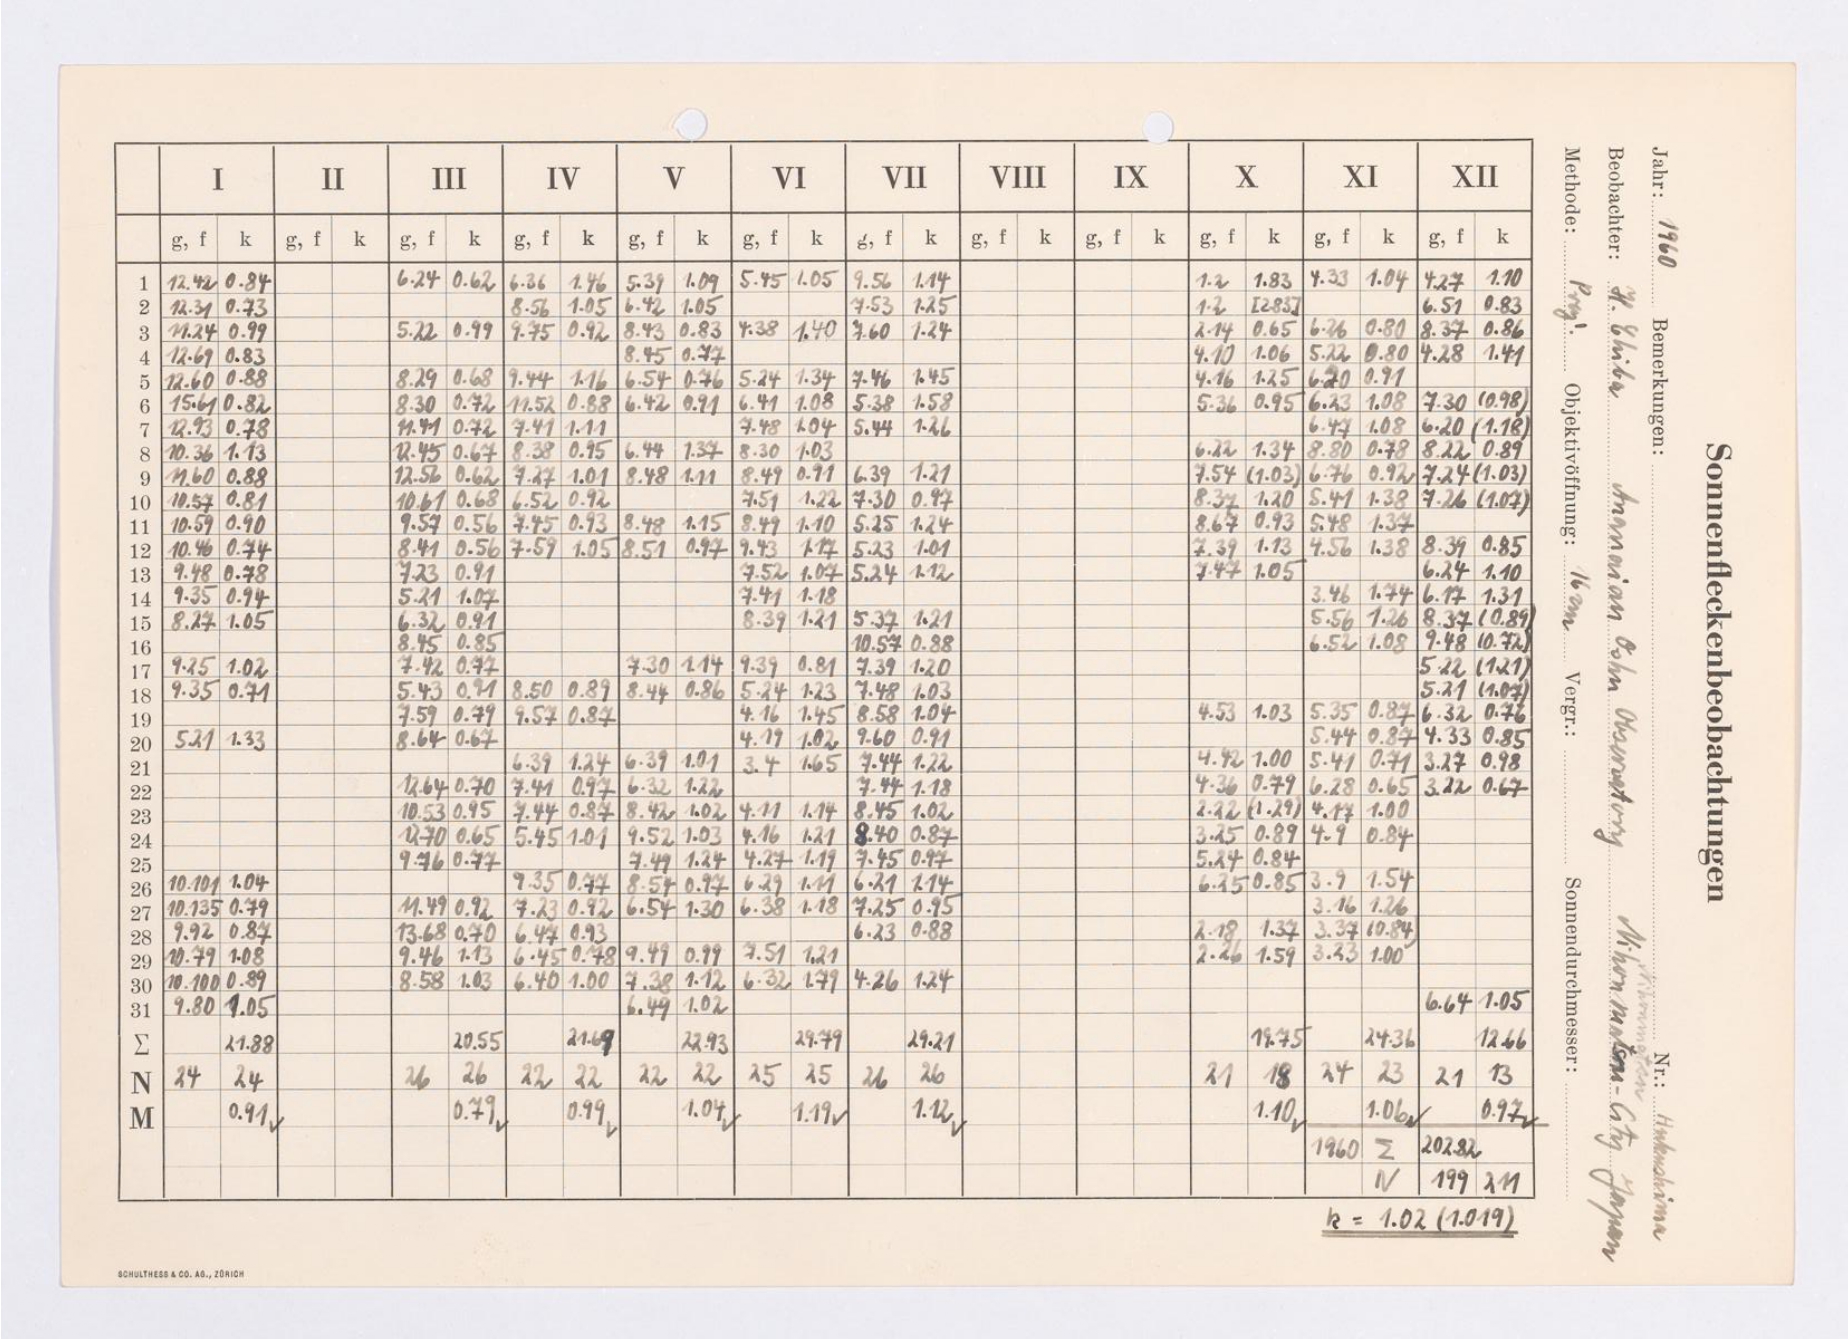 Sonnenfleckenbeobachtungen
Jahr: 1960 Bemerkungen: Nr.:
Beobachter: H. Shiba Observatory City Japan
Methode: Proj. Objektivöffnung: 16 cm Vergr.: Sonnendurchmesser:
I II III IV V VI VII VIII IX X XI XII
g, f k g, f k g, f k g, f k g, f k g, f k g, f k g, f k g, f k g, f k g, f k g, f k
1 12.42 0.84 6.24 0.62 6.36 1.46 5.39 1.09 5.45 1.05 9.56 1.14 1.2 1.83 4.33 1.04 4.27 1.10
2 12.31 0.73 8.56 1.05 6.42 1.05 7.53 1.25 1.2 [2.83] 6.51 0.83
3 11.24 0.99 5.22 0.99 9.75 0.92 8.43 0.83 4.38 1.40 7.60 1.24 2.14 0.65 6.26 0.80 8.37 0.86
4 12.69 0.83 8.45 0.77 4.10 1.06 5.22 0.80 4.28 1.41
5 12.60 0.88 8.29 0.68 9.44 1.16 6.54 0.76 5.24 1.34 7.46 1.45 4.16 1.25 6.20 0.91
6 15.61 0.82 8.30 0.72 11.52 0.88 6.42 0.91 6.41 1.08 5.38 1.58 5.36 0.95 6.23 1.08 7.30 (0.98)
7 12.93 0.78 11.41 0.72 7.41 1.11 7.48 1.04 5.44 1.26 6.47 1.08 6.20 (1.18)
8 10.36 1.13 12.45 0.67 8.38 0.95 6.44 1.37 8.30 1.03 6.22 1.34 8.80 0.78 8.22 0.89
9 11.60 0.88 12.56 0.62 7.27 1.01 8.48 1.11 8.49 0.91 6.39 1.21 7.54 (1.03) 6.76 0.92 7.24 (1.03)
10 10.57 0.81 10.61 0.68 6.52 0.92 7.51 1.22 7.30 0.97 8.37 1.20 5.41 1.38 7.26 (1.07)
11 10.59 0.90 9.57 0.56 7.45 0.93 8.48 1.15 8.49 1.10 5.25 1.24 8.67 0.93 5.48 1.37
12 10.46 0.74 8.41 0.56 7.59 1.05 8.51 0.97 9.43 1.17 5.23 1.01 7.39 1.13 4.56 1.38 8.39 0.85
13 9.48 0.78 7.23 0.91 7.52 1.07 5.24 1.12 7.47 1.05 6.24 1.10
14 9.35 0.94 5.21 1.07 7.41 1.18 3.46 1.74 6.17 1.31
15 8.27 1.05 6.32 0.91 8.39 1.21 5.37 1.21 5.56 1.26 8.37 (0.89)
16 8.45 0.85 10.57 0.88 6.52 1.08 9.48 (0.72)
17 9.25 1.02 7.42 0.77 7.30 1.14 9.39 0.81 7.39 1.20 5.22 (1.21)
18 9.35 0.71 5.43 0.91 8.50 0.89 8.44 0.86 5.24 1.23 7.48 1.03 5.21 (1.07)
19 7.59 0.79 9.57 0.87 4.16 1.45 8.58 1.04 4.53 1.03 5.35 0.87 6.32 0.76
20 5.21 1.33 8.64 0.67 4.19 1.02 9.60 0.91 5.44 0.87 4.33 0.85
21 6.39 1.24 6.39 1.01 3.4 1.65 7.44 1.22 4.42 1.00 5.41 0.71 3.27 0.98
22 12.64 0.70 7.41 0.97 6.32 1.22 7.44 1.18 4.36 0.79 6.28 0.65 3.22 0.67
23 10.53 0.95 7.44 0.87 8.42 1.02 4.11 1.14 8.45 1.02 2.22 (1.29) 4.17 1.00
24 12.70 0.65 5.45 1.01 9.52 1.03 4.16 1.21 8.40 0.87 3.25 0.89 4.9 0.84
25 9.76 0.77 7.49 1.24 4.27 1.19 7.45 0.97 5.24 0.84
26 10.101 1.04 9.35 0.77 8.54 0.97 6.29 1.11 6.21 1.14 6.25 0.85 3.9 1.54
27 10.135 0.79 11.49 0.92 7.23 0.92 6.54 1.30 6.38 1.18 7.25 0.95 3.16 1.26
28 9.92 0.87 13.68 0.70 6.47 0.93 6.23 0.88 2.18 1.37 3.37 (0.84)
29 10.79 1.08 9.46 1.13 6.45 0.78 9.49 0.99 7.51 1.21 2.26 1.59 3.23 1.00
30 10.100 0.89 8.58 1.03 6.40 1.00 7.38 1.12 6.32 1.79 4.26 1.24
31 9.80 1.05 6.49 1.02 6.64 1.05
Σ 21.88 20.55 21.69 22.93 29.79 29.21 19.75 24.36 12.66
N 24 24 26 26 22 22 22 22 25 25 26 26 21 18 24 23 21 13
M 0.91 0.79 0.99 1.04 1.19 1.12 1.10 1.06 0.97
1960 Σ 202.82
N 199 211
k = 1.02 (1.019)
SCHULTHESS & CO. AG., ZÜRICH